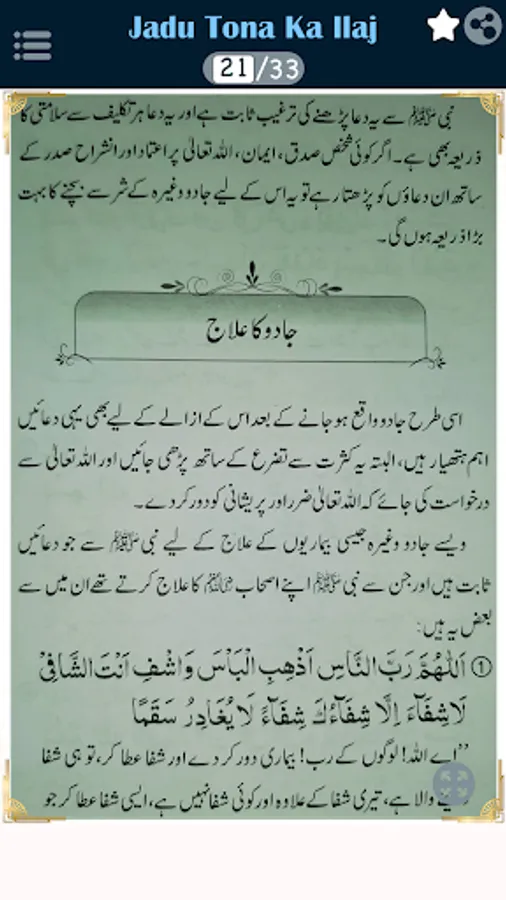 Jadu Tona Ka Ilaj
21/33
نبی ﷺ سے یہ دعا پڑھنے کی ترغیب ثابت ہے اور یہ دعا ہر تکلیف سے سلامتی کا
ذریعہ بھی ہے۔ اگر کوئی شخص صدق، ایمان، اللہ تعالیٰ پر اعتماد اور انشراح صدر کے
ساتھ ان دعاؤں کو پڑھتا رہے تو یہ اس کے لیے جادو وغیرہ کے شر سے بچنے کا بہت
بڑا ذریعہ ہوں گی۔
جادو کا علاج
اسی طرح جادو واقع ہو جانے کے بعد اس کے ازالے کے لیے بھی یہی دعائیں
اہم ہتھیار ہیں، البتہ یہ کثرت سے تضرع کے ساتھ پڑھی جائیں اور اللہ تعالیٰ سے
درخواست کی جائے کہ اللہ تعالیٰ ضرر اور پریشانی کو دور کر دے۔
ویسے جادو وغیرہ جیسی بیماریوں کے علاج کے لیے نبی ﷺ سے جو دعائیں
ثابت ہیں اور جن سے نبی ﷺ اپنے اصحاب کا علاج کرتے تھے ان میں سے
بعض یہ ہیں:
① اَللّٰهُمَّ رَبَّ النَّاسِ اَذْهِبِ الْبَاْسَ وَاشْفِ اَنْتَ الشَّافِيْ
لَا شِفَآءَ اِلَّا شِفَآؤُكَ شِفَآءً لَا يُغَادِرُ سَقَمًا
”اے اللہ! لوگوں کے رب! بیماری دور کر دے اور شفا عطا کر، تو ہی شفا
والا ہے، تیری شفا کے علاوہ اور کوئی شفا نہیں ہے، ایسی شفا عطا کر جو